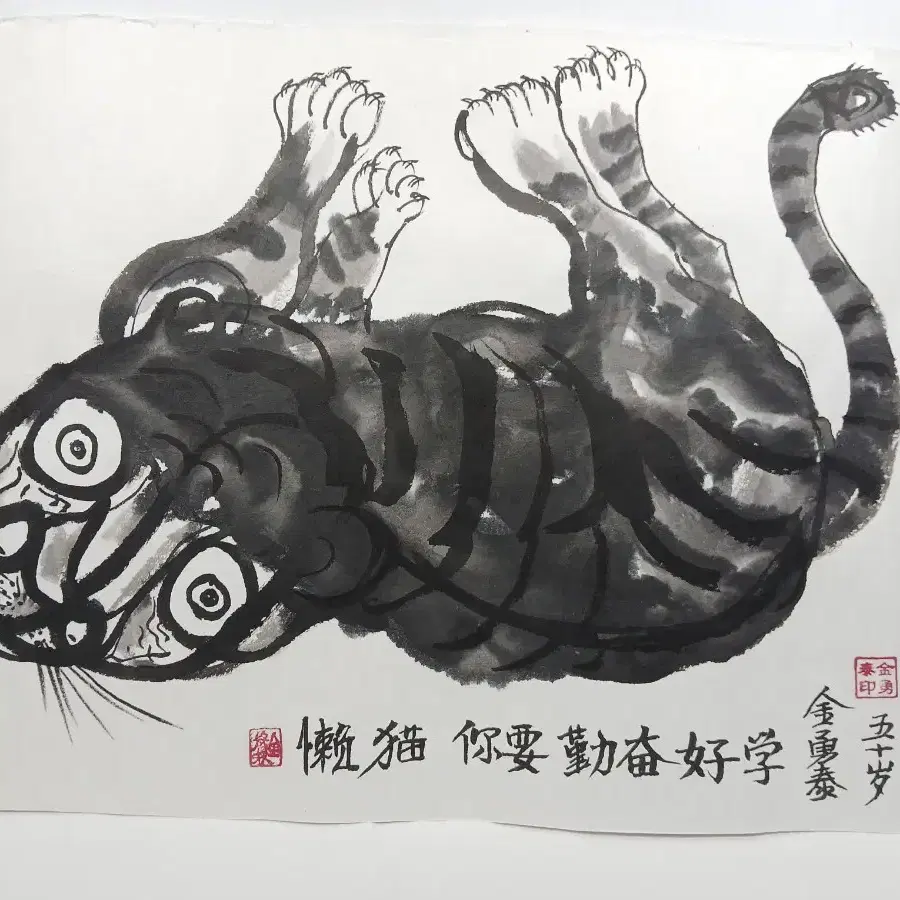 懒猫 你要勤奋好学
金勇泰
五十岁
金勇泰印